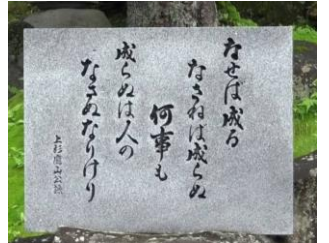 なせは成る
なさねは成らぬ
何事も
成らぬは人の
なさぬなりけり
上杉鷹山公詠